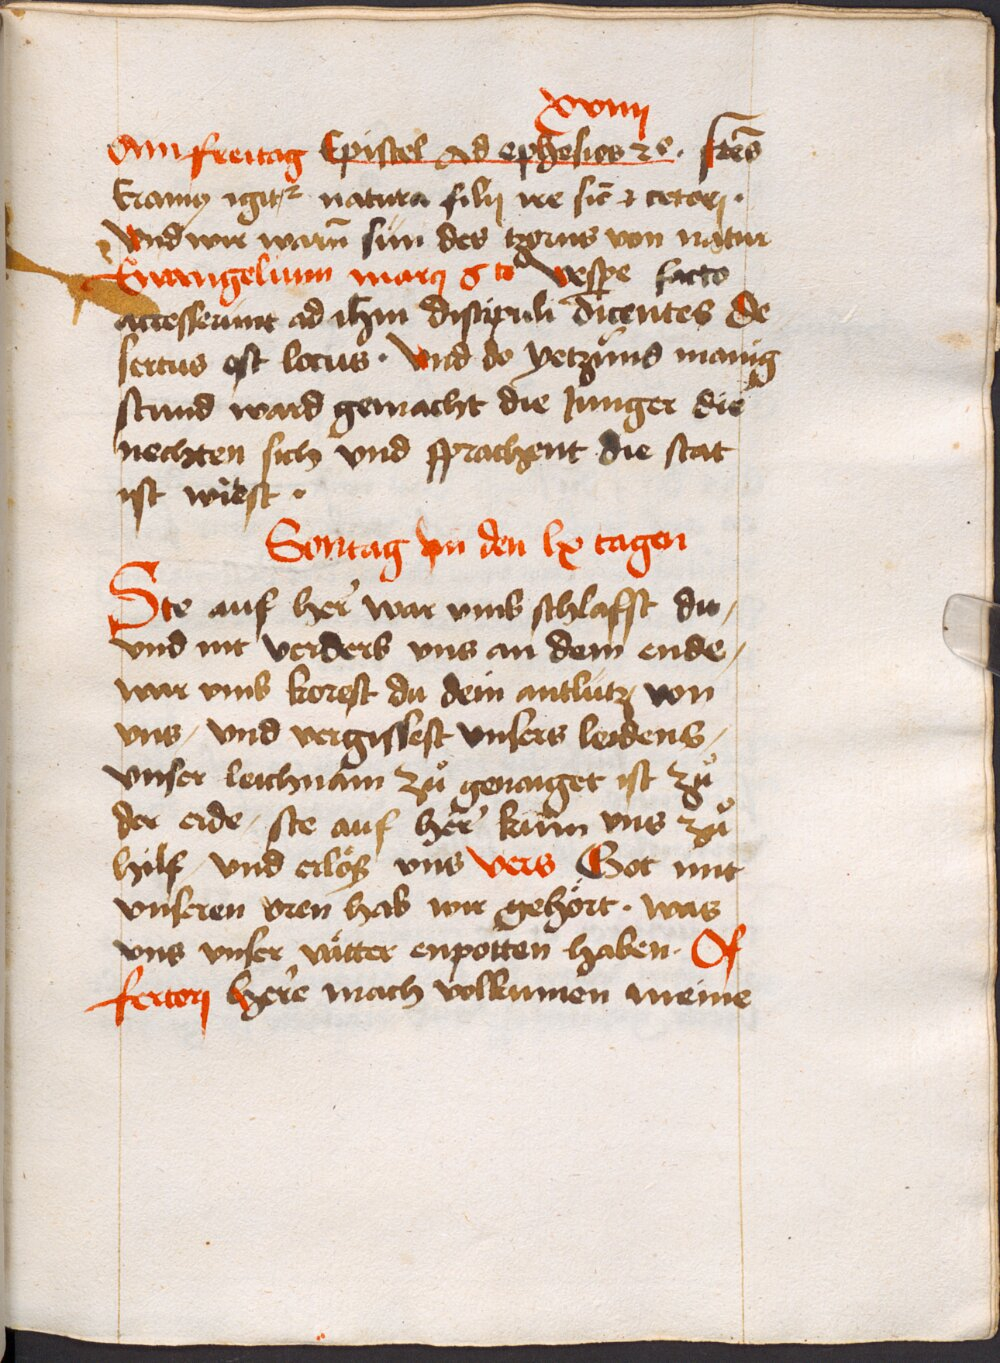 xviiij
Am freitag Epistel Ad ephesios 2º. fr̄es
Eramꝰ igitᷣ natura filij ire sic̄ & ceteri.
Vnd wir warn̄ sün des tzorns von natur
Ewangelium marci 6 to Vesp̄e facto
accesserunt ad ihm̄ discipuli dicentes De
sertus est locus. Vnd do yetzund manig
stund ward gemacht die Junger die
nechten sich vnd sprachent die stat
ist wiest.
Sontag vn den lx tagen
Ste auf her̄ war vmb schlaffst du/
vnd nit verderb vns an dem ende/
war vmb korest du dein antlütz von
vns/ vnd vergissest vnsers leidens/
vnser leichnam zů genaiget ist zů
der erde/ ste auf her̄ kum̄ vns zů
hilf/ vnd erlöß vns vers Got mit
vnseren oren hab wir gehört. was
vns vnser vätter enpotten haben. Of
fertorj here mach volkumen meine